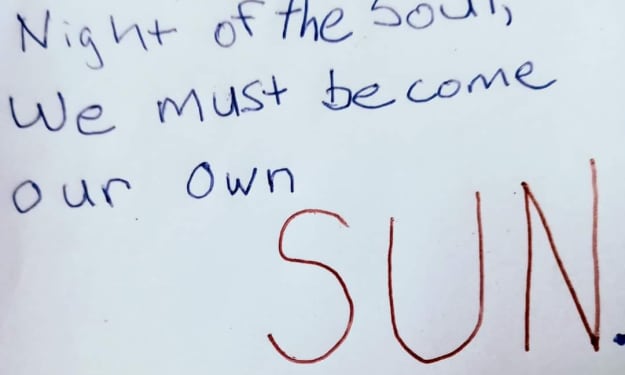 Night of the Soul,
We must become
our own
SUN.